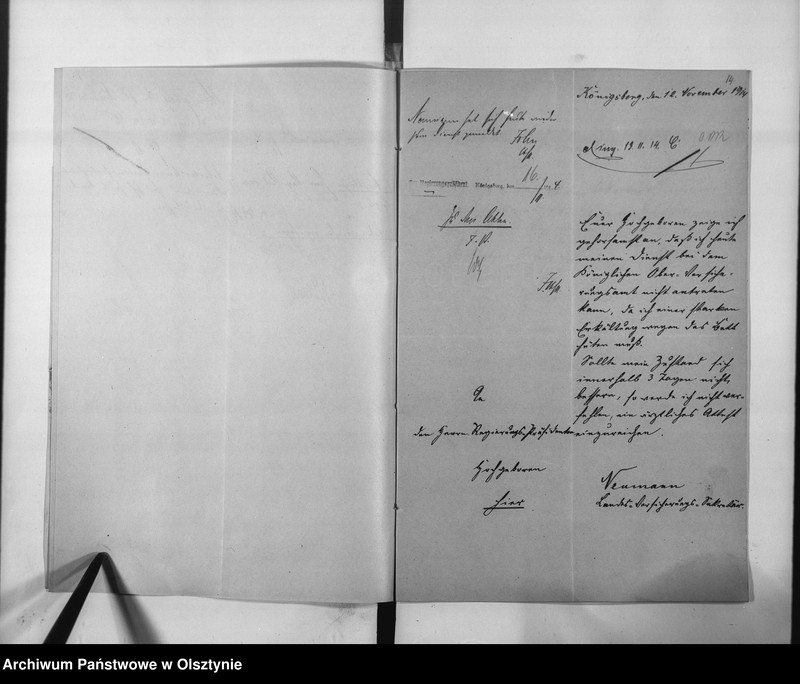 14
Königsberg, den 12. November 1914
Neumann hat sich heute wieder
zum Dienst gemeldet.
ging. 13. 11. 14.
16.
Königsberg, den
Zu den Akten
Euer Hochgeboren zeige ich
gehorsamst an, daß ich heute
meinen Dienst bei dem
Königlichen Ober-Versiche-
rungsamt nicht antreten
kann, da ich einer starken
Erkältung wegen das Bett
hüten muß.
Sollte mein Zustand sich
innerhalb 3 Tagen nicht
bessern, so werde ich nicht ver-
fehlen, ein ärztliches Attest
einzureichen.
Neumann
Landes-Versicherungs-Sekretär.
An
den Herrn Regierungs-Präsidenten
Hochgeboren
hier
Archiwum Państwowe w Olsztynie